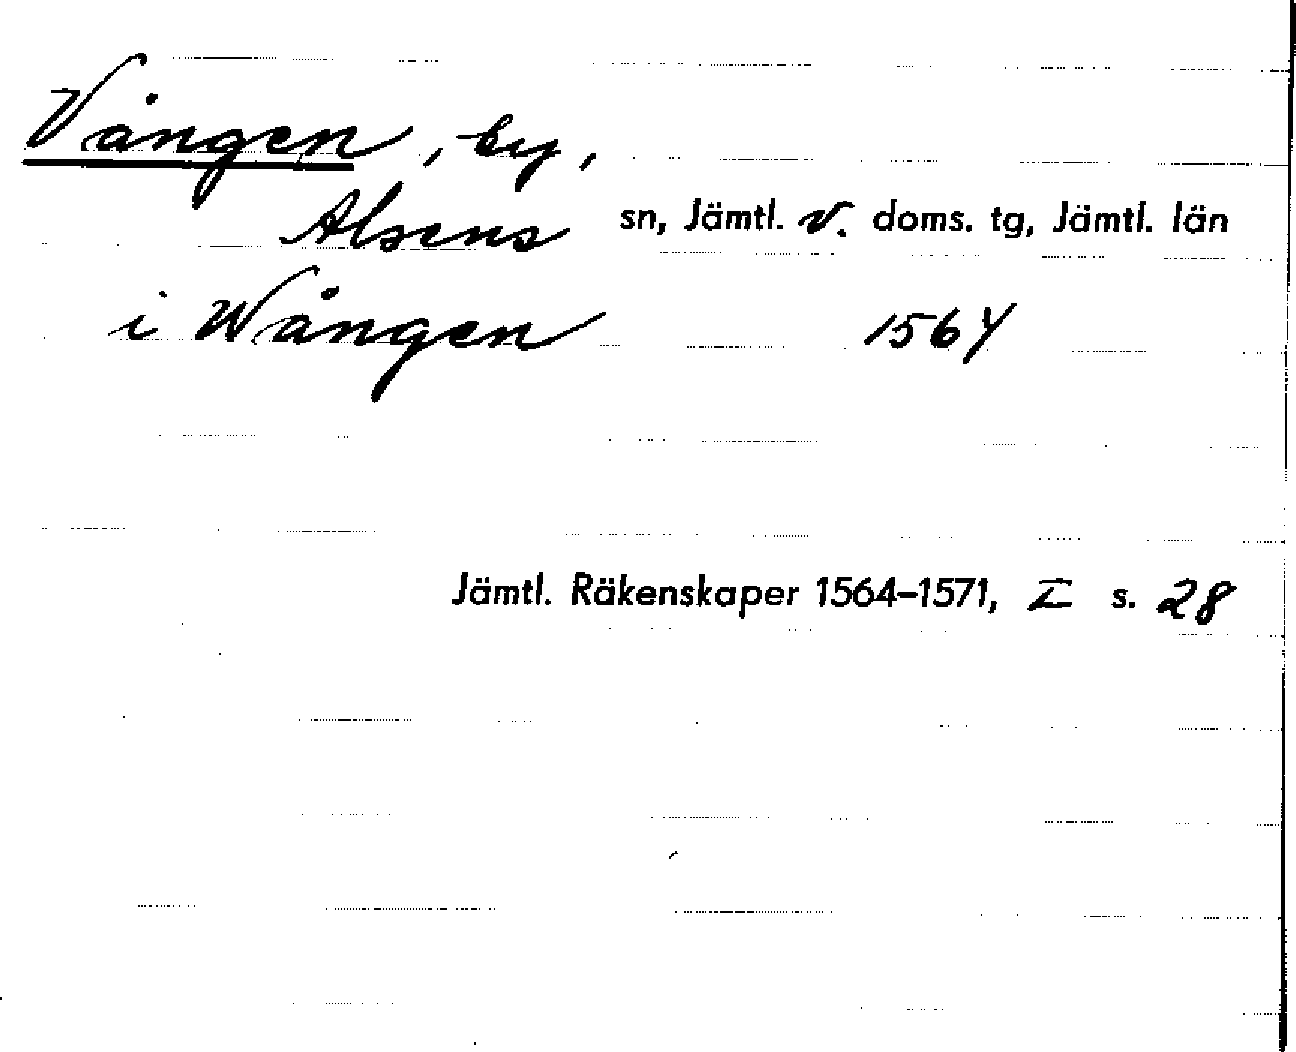 Vången, by,
Alsens sn, Jämtl. v. doms. tg, Jämtl. län
i Wången 1564
Jämtl. Räkenskaper 1564–1571, I s. 28